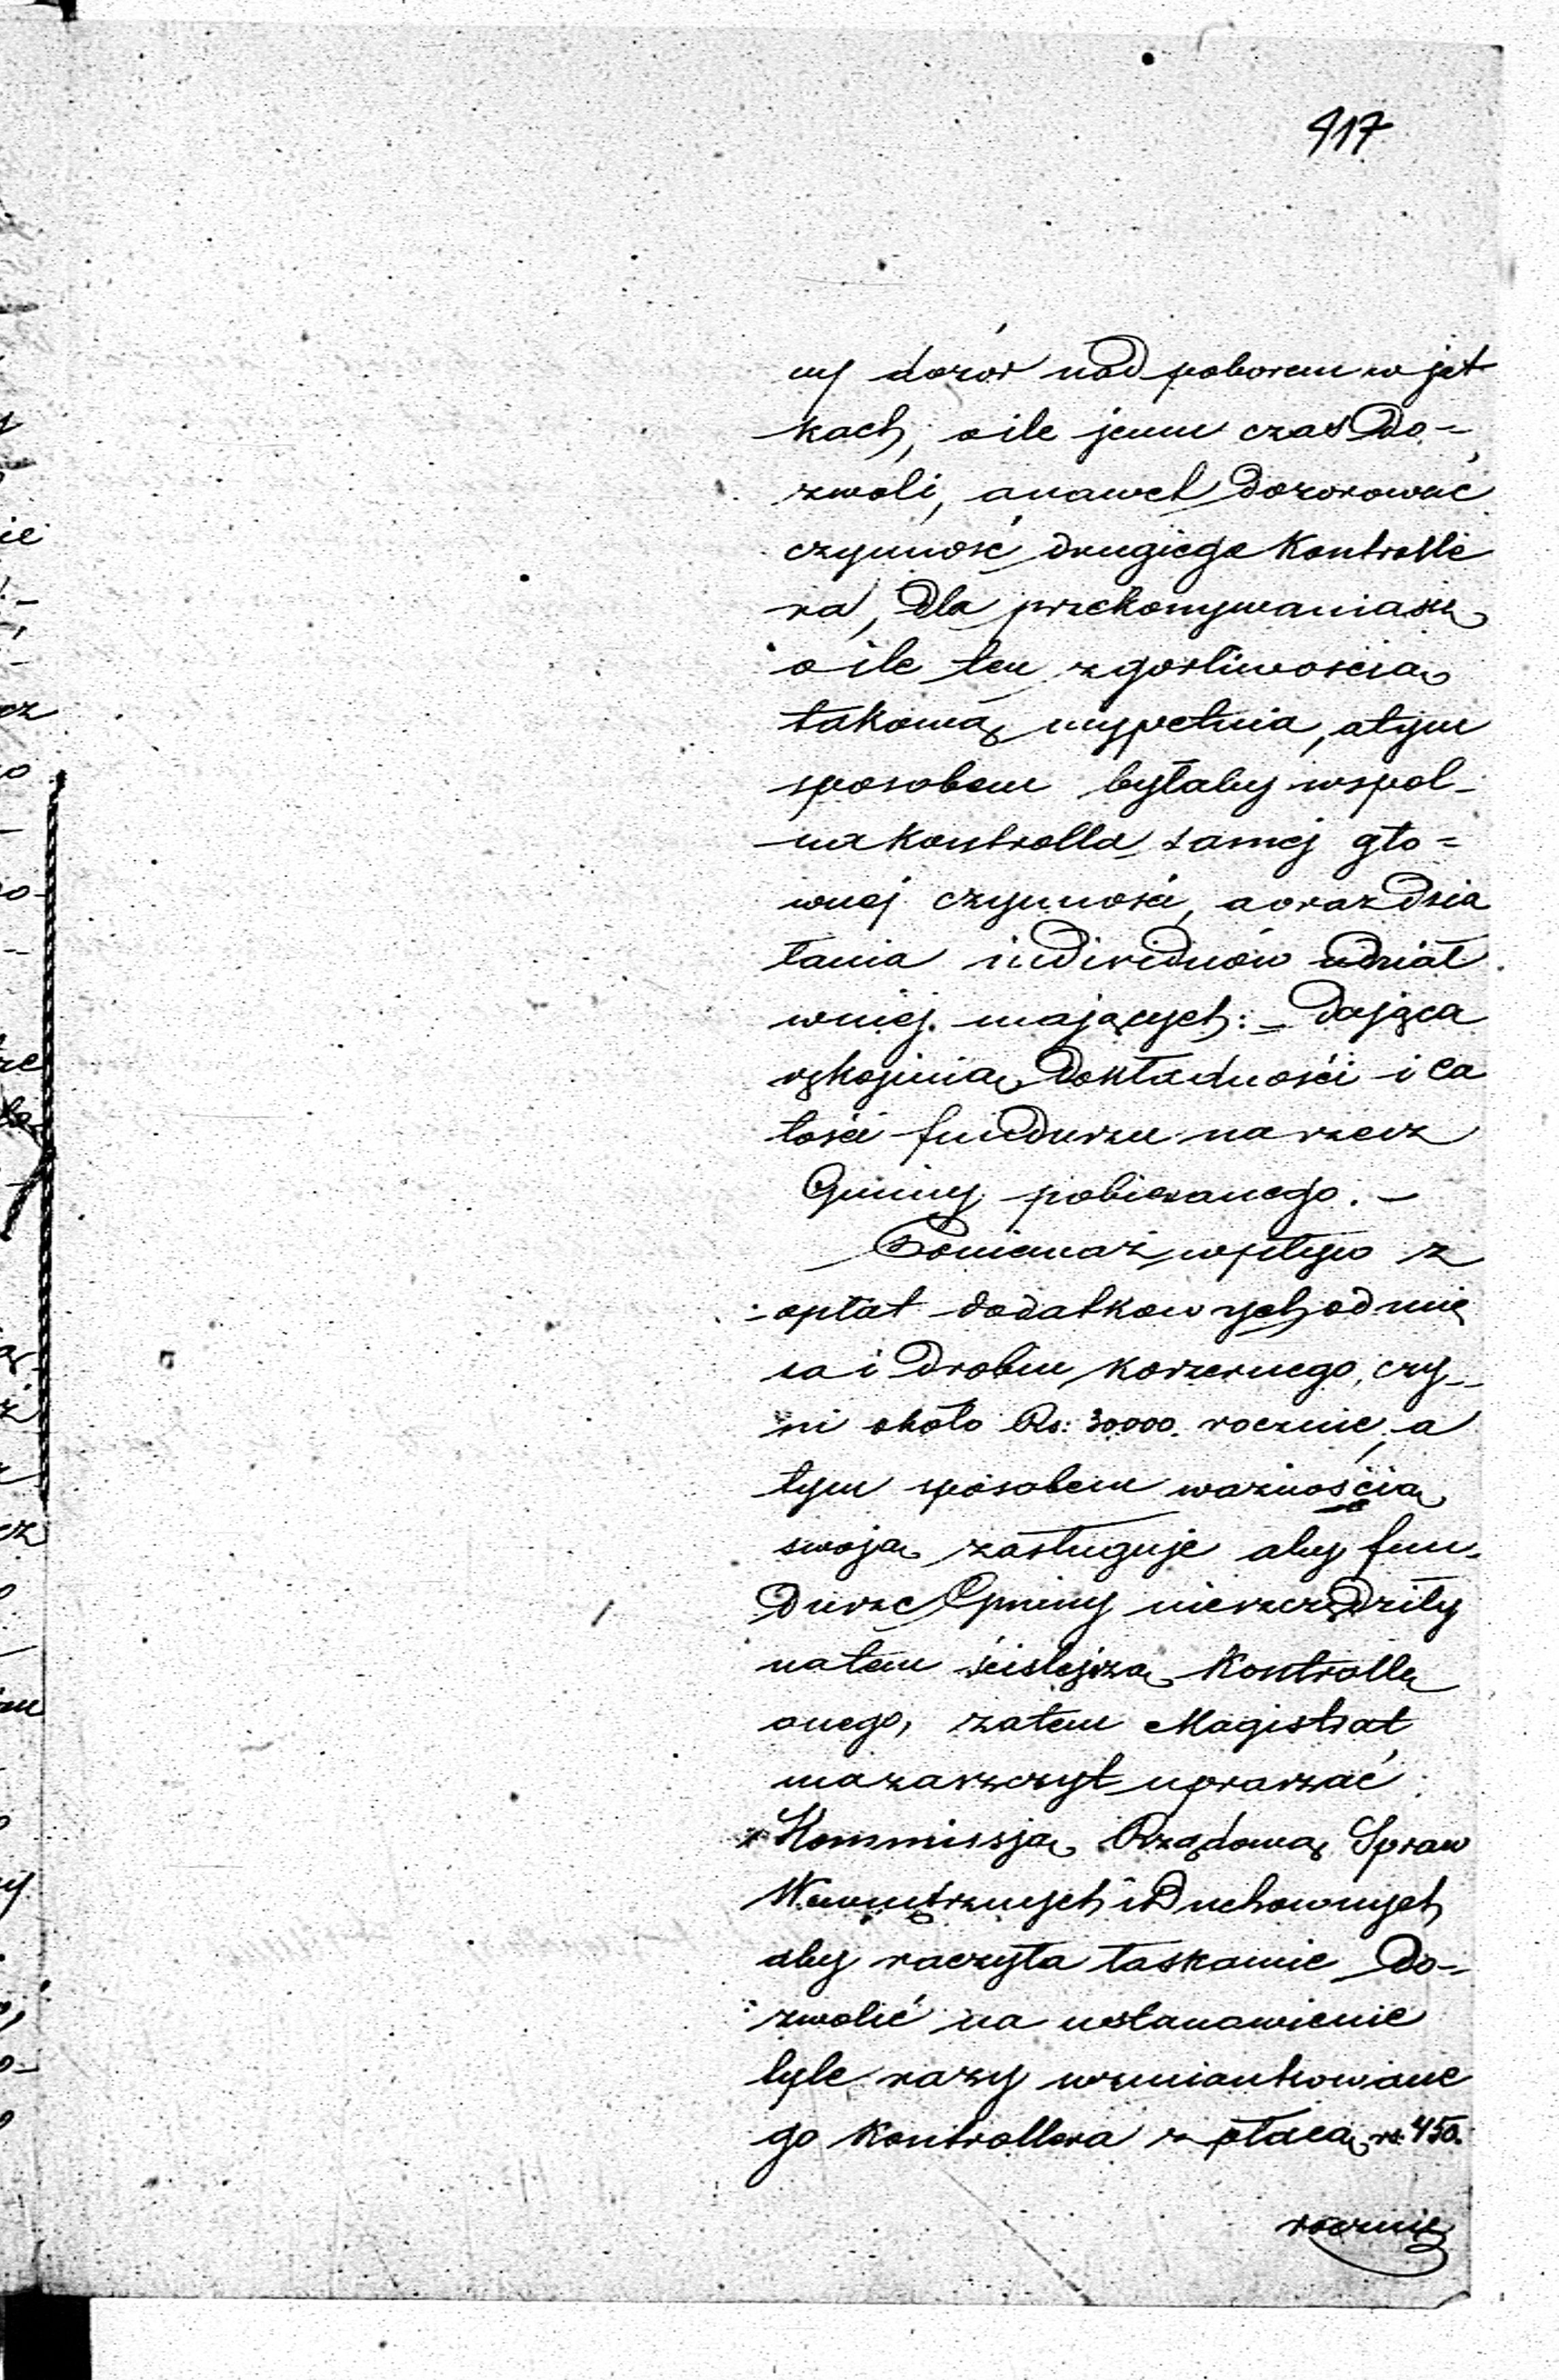 417
ny dozór nad poborem w jat
kach, o ile jemu czas do=
zwoli, a nawet dozorować
czynność drugiego Kontrolle
ra, dla przekonywania się
o ile ten z gorliwością
takową wypełnia, a tym
sposobem byłaby wspol-
na kontrolla samej głó=
wnej czynności, a oraz dzia
łania individuów udział
w niej mających: - dająca
rękojmią dokładności i ca
łości funduszu na rzecz
Gminy pobieranego. -
Ponieważ wpływ z
opłat dodatkowych od mię
sa i drobiu koszernego, czy-
ni około Rs: 30000. rocznie, a
tym sposobem ważnością
swoją zasługuje aby fun-
dusze Gminy nieszczędziły
na tem ściślejszą Kontrollę
onego, zatem Magistrat
ma zaszczyt upraszać
Kommissją Rządową Spraw
Wewnętrznych i Duchownych
aby raczyła łaskawie do-
zwolić na ustanowienie
tyle razy wzmiankowane
go Kontrollera z płacą rs. 450.
rocznie